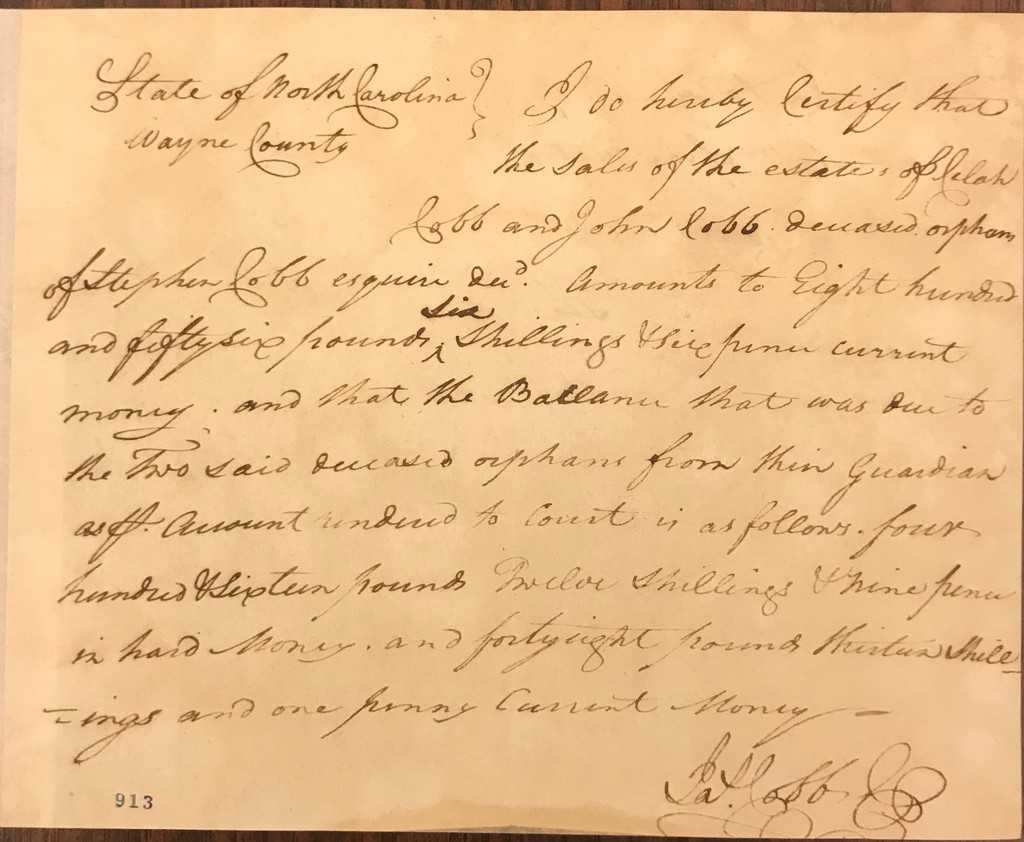 State of North Carolina } I do hereby Certify that
Wayne County
the sales of the estates of Celah
Cobb and John Cobb deceased orphans
of Stephen Cobb esquire decd. Amounts to Eight hundred
and fifty six pounds ^ six Shillings & six pence current
money. and that the Ballance that was due to
the Two said deceased orphans from their Guardian
as pr. Account rendered to Court is as follows. four
hundred & sixteen pounds Twelve Shillings & nine pence
in hard Money. and forty eight pounds thirteen Shill-
-ings and one penny Current Money —
Jas. Cobb
913